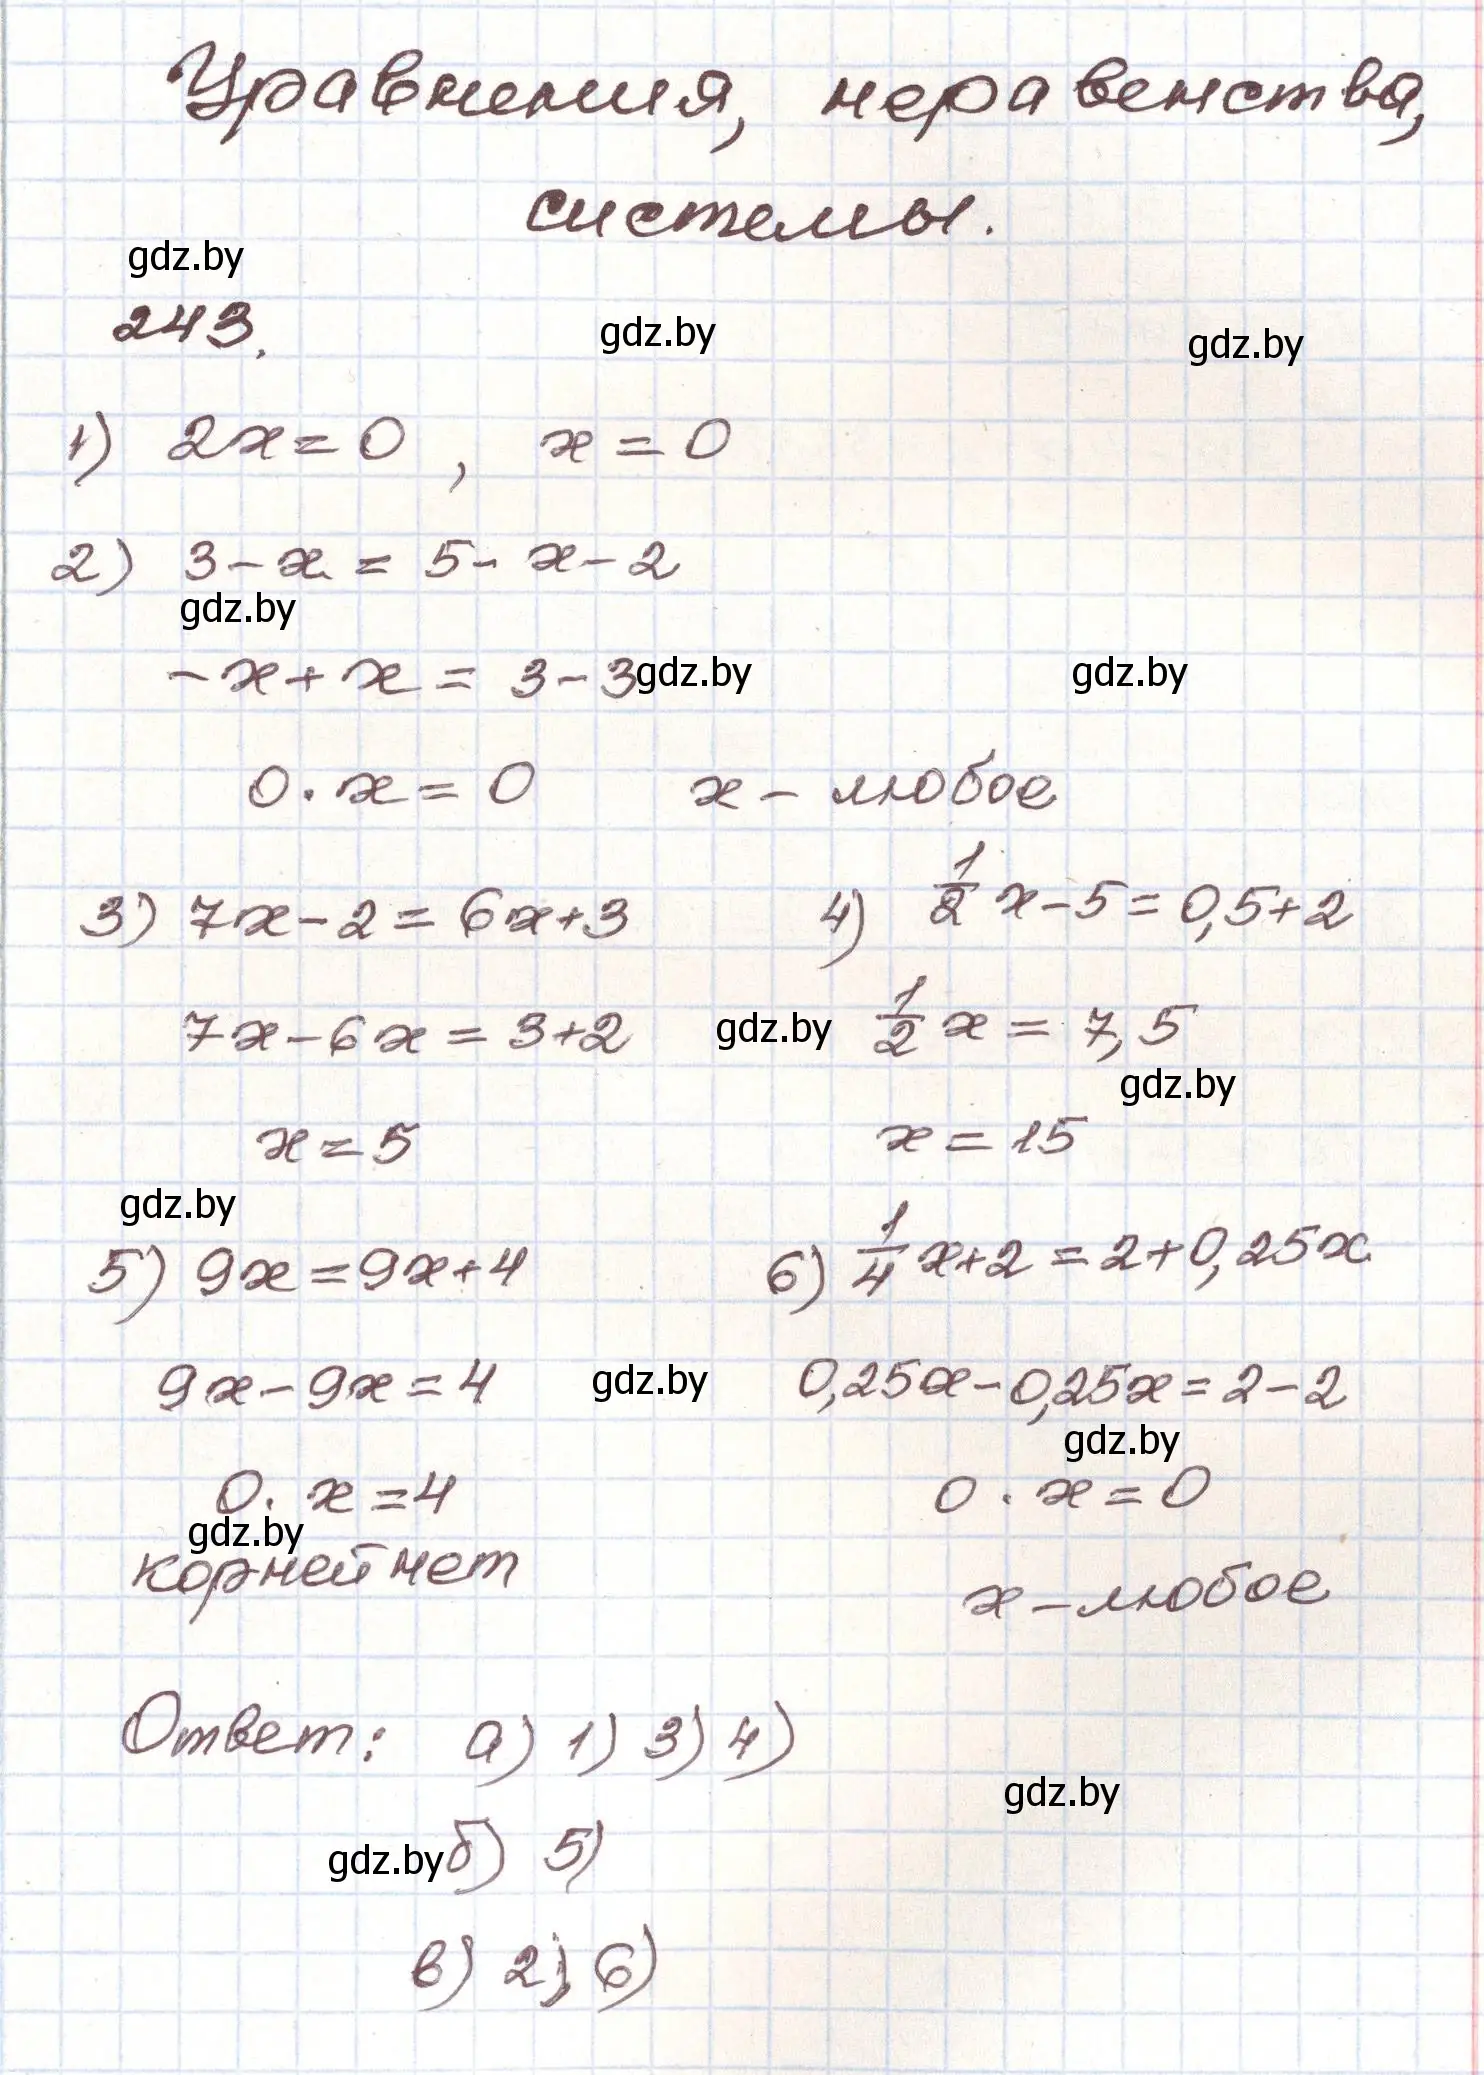 Уравнения, неравенства,
системы.
gdz.by
243.
gdz.by
gdz.by
1) 2x = 0 , x = 0
2) 3 - x = 5 - x - 2
gdz.by
- x + x = 3 - 3
gdz.by
gdz.by
0 · x = 0 x - любое
3) 7x - 2 = 6x + 3
7x - 6x = 3 + 2
x = 5
4) 1/2 x - 5 = 0,5 + 2
gdz.by
1/2 x = 7,5
gdz.by
x = 15
gdz.by
5) 9x = 9x + 4
9x - 9x = 4
gdz.by
0 · x = 4
gdz.by
корней нет
6) 1/4 x + 2 = 2 + 0,25x
0,25x - 0,25x = 2 - 2
gdz.by
0 · x = 0
x - любое
Ответ: а) 1) 3) 4)
gdz.by
gdz.by
б) 5)
в) 2), 6)